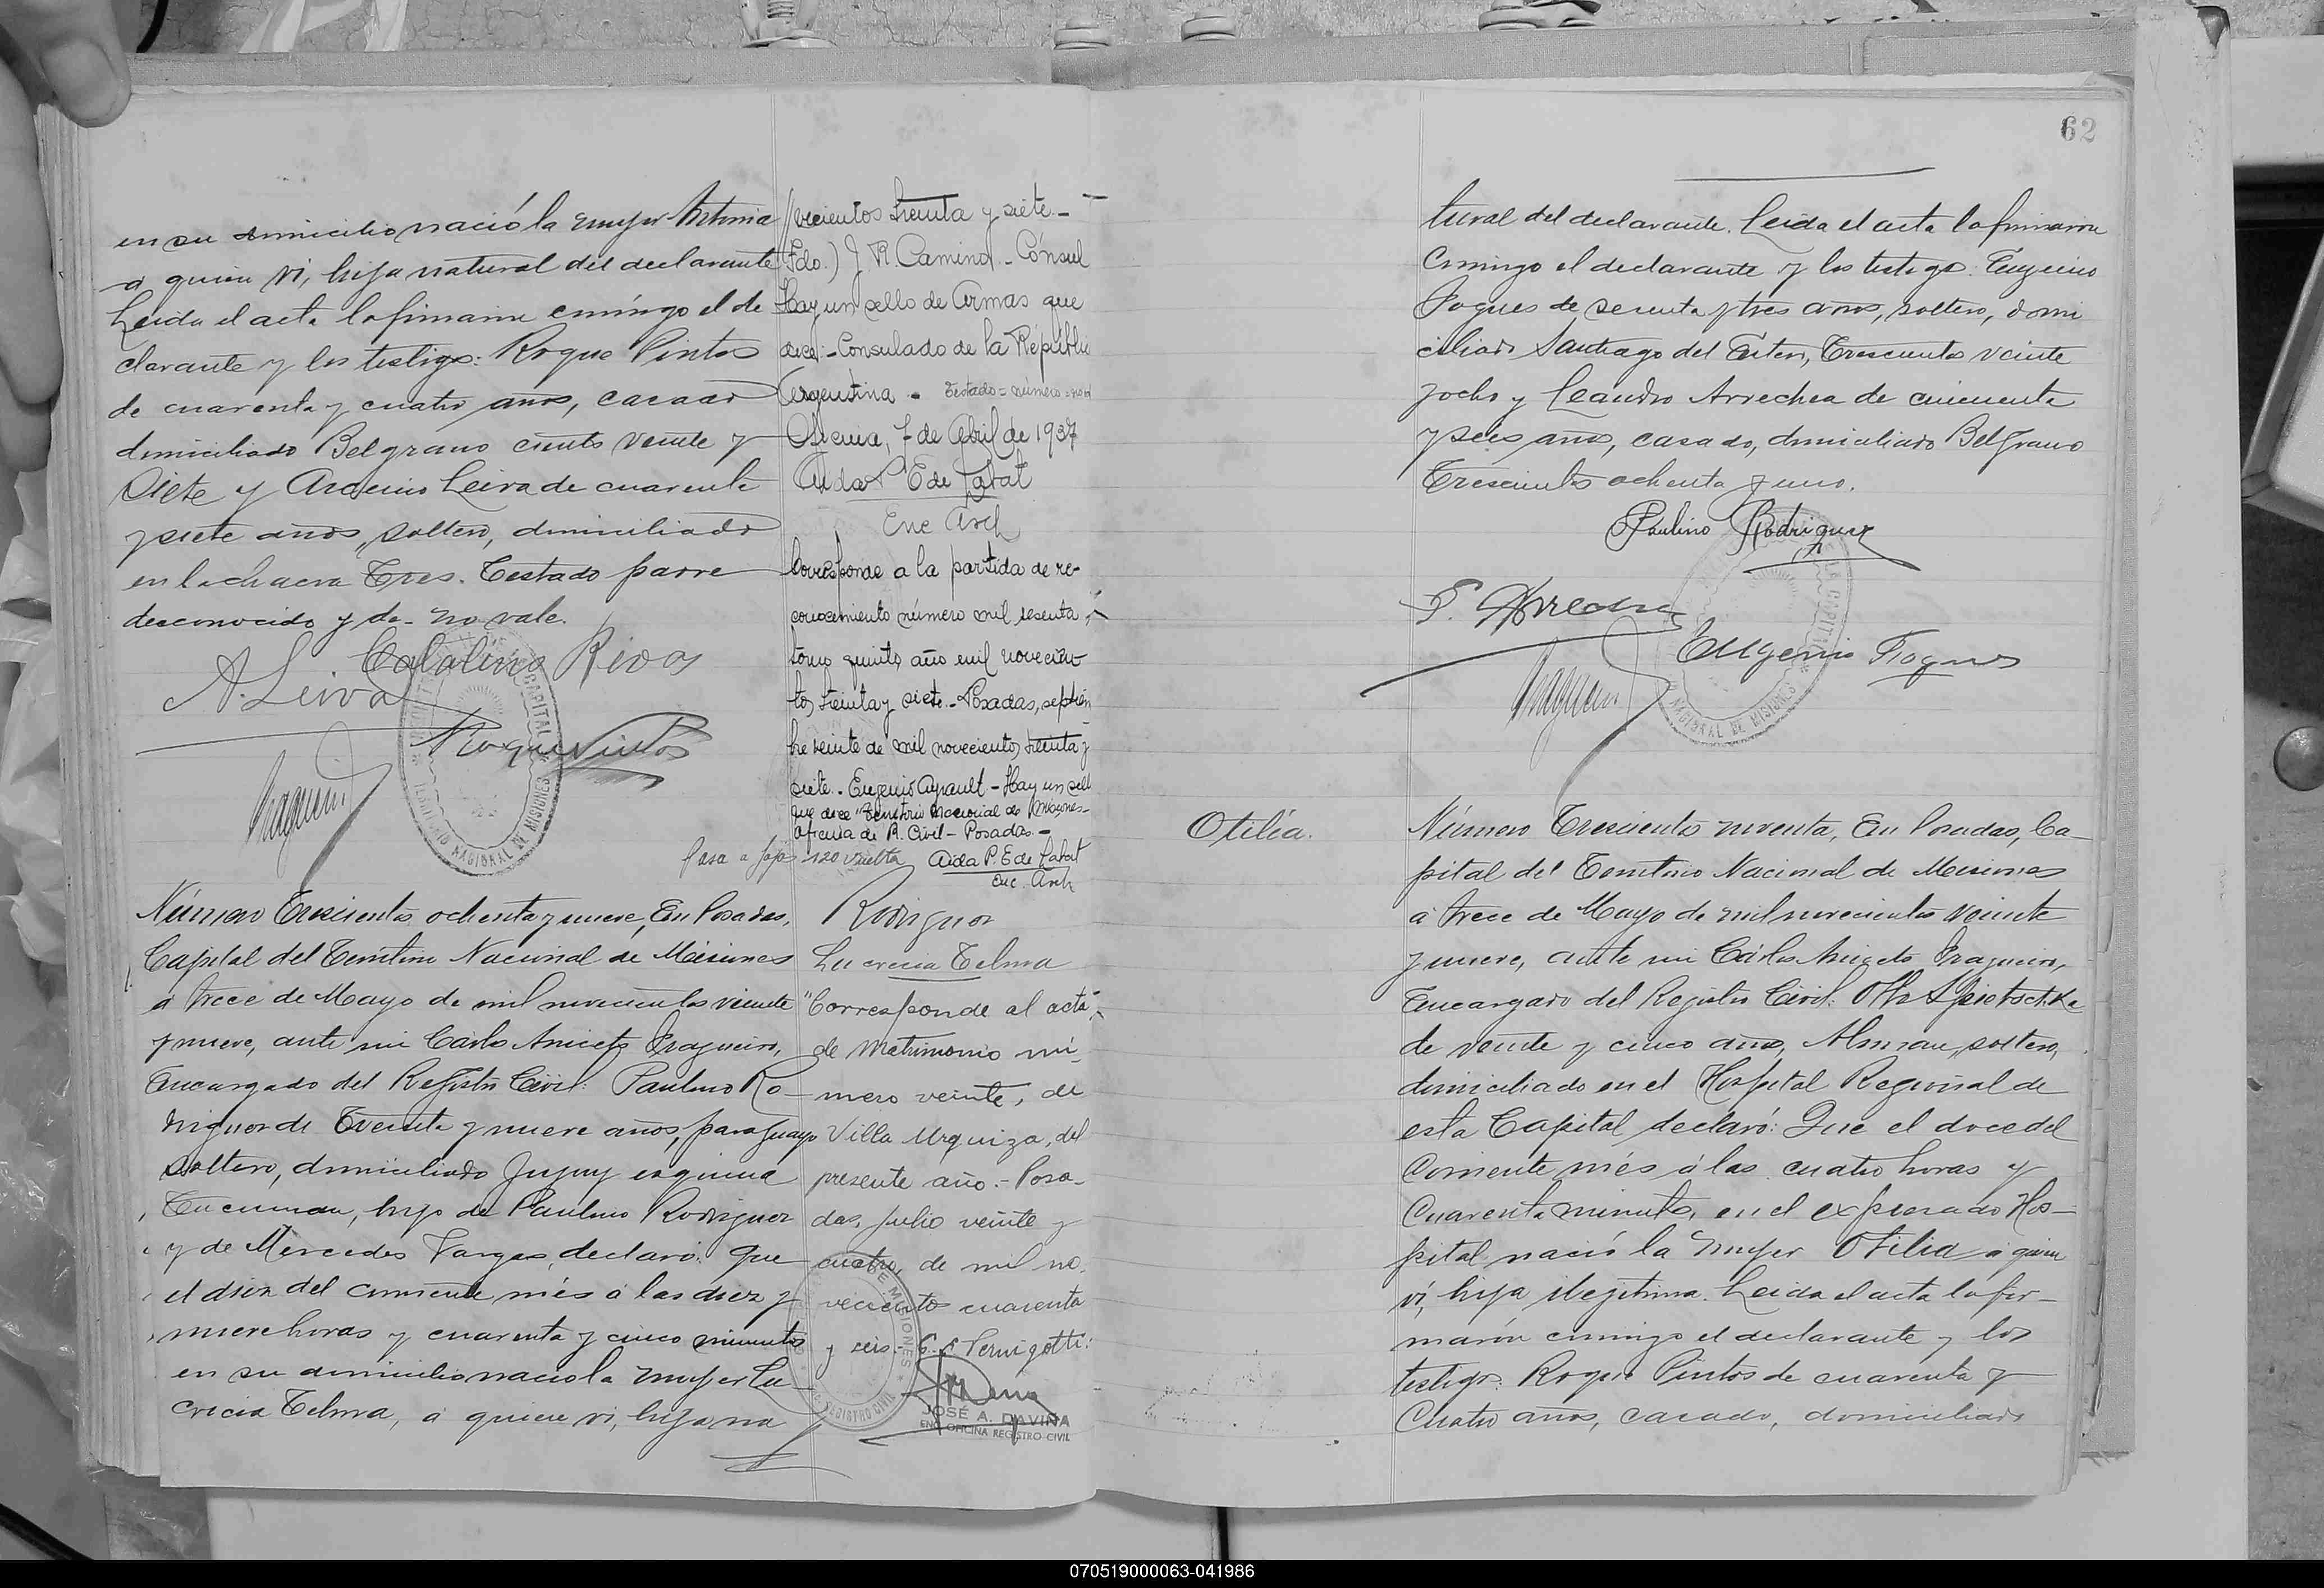 en su domicilio nació la mujer Antonia
a quien ví, hija natural del declarante
Leida el acta la firmaron conmigo el de
clarante y los testigos: Roque Pintos
de cuarenta y cuatro años, casado
domiciliado Belgrano ciento veinte y
Siete y Arsenio Leiva de cuarenta
y siete años, soltero, domiciliado
en la chacra Tres. Testado padre
desconocido y de- no vale.
Catalino Rivas
A. Leiva
Roque Pintos
CAPITAL
TERRITORIO NACIONAL DE MISIONES
/vecientos treinta y siete.-
Fdo.) J. R. Camino - Cónsul
Hay un sello de Armas que
dice:- Consulado de la Républi
Argentina. Testado = número =
Oficina, 7 de Abril de 1937
Aida P. E de Zabat
Enc Arch
Corresponde a la partida de re-
conocimiento número mil sesenta,
tomo quinto, año mil novecien
tos treinta y siete.- Posadas, septiem
bre veinte de mil novecientos treinta y
siete.- Eugenio Ayrault - Hay un sello
que dice "Territorio Nacional de Misiones-
oficina de R. Civil - Posadas.-
Pasa a fojas 120 vuelta Aida P. E de Zabat
Enc. Arch
Número Trescientos ochenta y nueve, En Posadas,
Capital del Territorio Nacional de Misiones
á trece de Mayo de mil novecientos veinte
y nueve, ante mi Carlos Aniceto Fragueiro,
Encargado del Registro Civil: Paulino Ro-
driguez de Treinta y nueve años, paraguayo
soltero, domiciliado Jujuy esquina
Tucuman, hijo de Paulino Rodriguez
y de Mercedes Vargas, declaró: Que
el diez del corriente més á las diez y
nueve horas y cuarenta y cinco minutos
en su domicilio nació la mujer Lu-
crecia Telma, á quien ví, hija na
Rodriguez
Lucrecia Telma
"Corresponde al acta
de Matrimonio nú-
mero veinte, de
Villa Urquiza, del
presente año.- Posa-
das, julio veinte y
cuatro, de mil no-
vecientos cuarenta
y seis.- Pernigotti:
MISIONES
REGISTRO CIVIL
JOSÉ A. DAVIÑA
ENC. OFICINA REGISTRO CIVIL
62
tural del declarante. Leida el acta la firmaron
Conmigo el declarante y los testigos: Eugenio
Fogues de sesenta y tres años, soltero, domi
ciliado Santiago del Estero, Trescientos veinte
y ocho y Leandro Arrechea de cincuenta
y seis años, casado, domiciliado Belgrano
Trescientos ochenta y uno.
Paulino Rodriguez
Arrechea
Eugenio Fogues
CAPITAL
NACIONAL DE MISIONES
Otilia.
Número Trescientos noventa, En Posadas, Ca-
pital del Territorio Nacional de Misiones
á trece de Mayo de mil novecientos veinte
y nueve, ante mi Cárlos Aniceto Fragueiro,
Encargado del Registro Civil: Otto
de veinte y cinco años, Aleman, soltero,
domiciliado en el Hospital Regional de
esta Capital, declaró: Que el doce del
Corriente més á las cuatro horas y
Cuarenta minutos, en el expresado Hos-
pital nació la mujer Otilia á quien
ví, hija ilegitima. Leida el acta la fir-
marón conmigo el declarante y los
testigos: Roque Pintos de cuarenta y
Cuatro años, casado, domiciliado
070519000063-041986